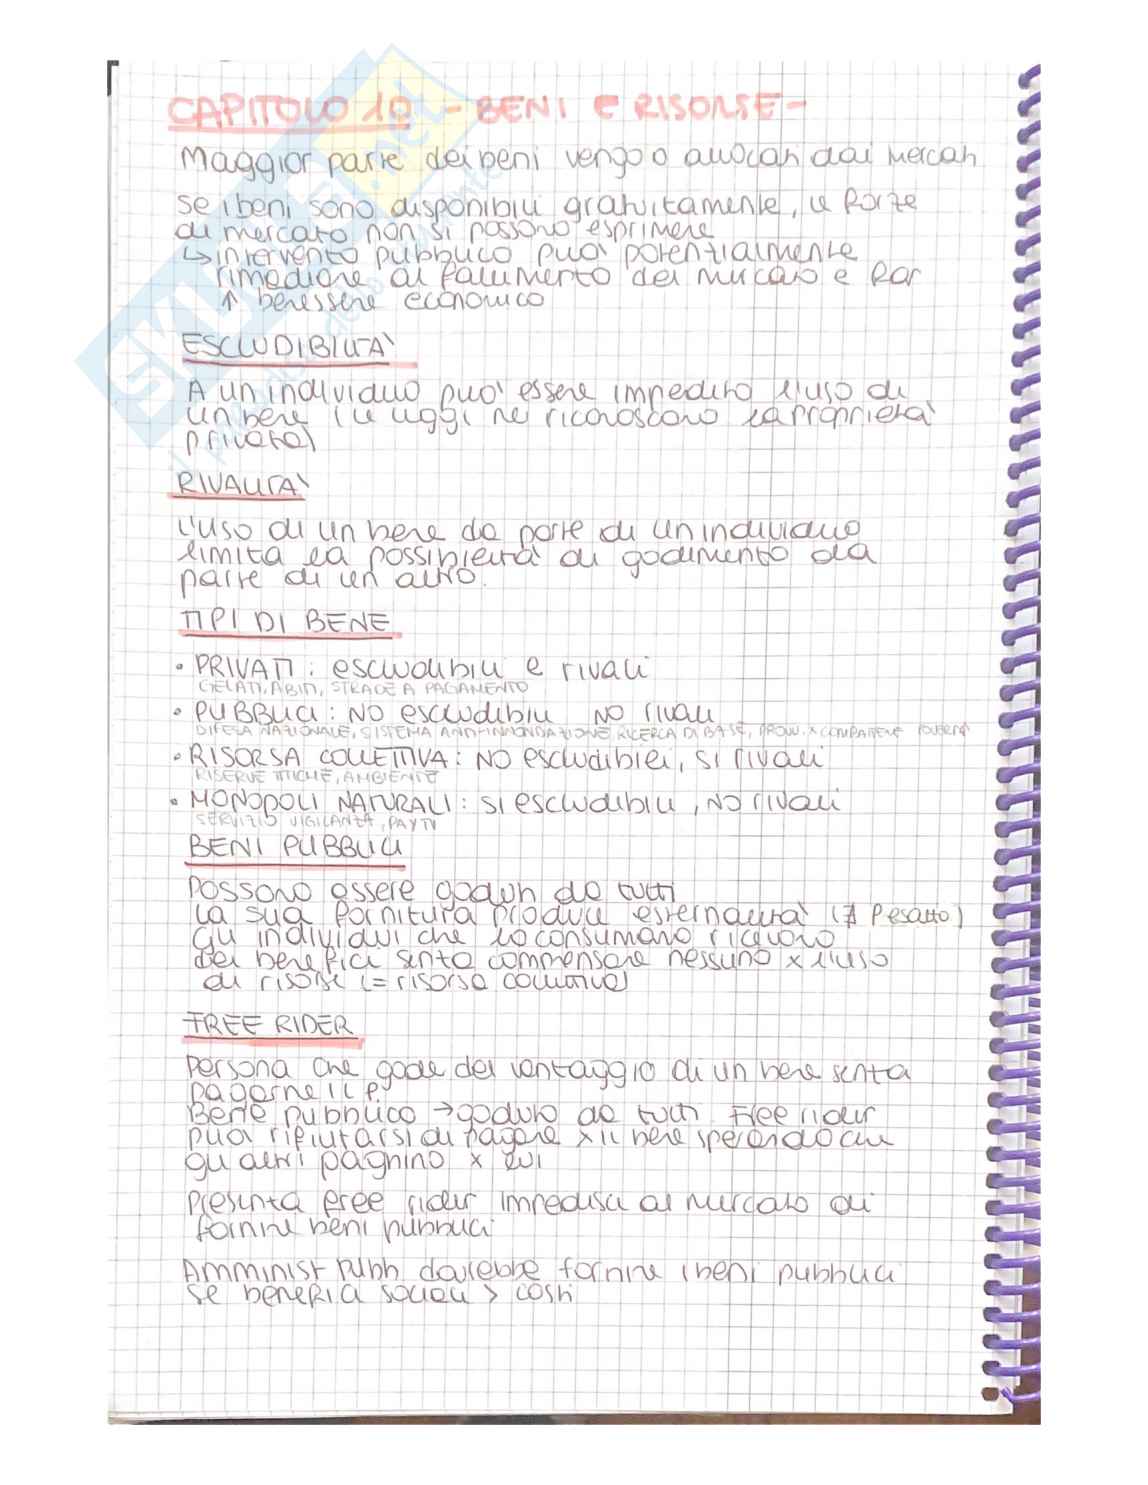 CAPITOLO 10 - BENI E RISORSE -
Maggior parte dei beni vengo o allocati dai mercati
Se i beni sono disponibili gratuitamente, le forze
di mercato non si possono esprimere
↳ intervento pubblico può potenzialmente
rimediare al fallimento del mercato e far
↑ benessere economico
ESCLUDIBILITÀ
A un individuo può essere impedito l'uso di
un bene (le leggi ne riconoscono la proprietà
privata)
RIVALITÀ
L'uso di un bene da parte di un individuo
limita la possibilità di godimento da
parte di un altro.
TIPI DI BENE
• PRIVATI: escludibili e rivali
GELATI, ABITI, STRADE A PAGAMENTO
• PUBBLICI: NO escludibili NO rivali
DIFESA NAZIONALE, SISTEMA ANTI-INONDAZIONE RICERCA DI BASE, PROVV. x COMBATTERE POVERTÀ
• RISORSA COLLETTIVA: NO escludibili, SI rivali
RISERVE ITTICHE, AMBIENTE
• MONOPOLI NATURALI: SI escludibili, NO rivali
SERVIZIO VIGILANZA, PAY TV
BENI PUBBLICI
Possono essere goduti da tutti
La sua fornitura produce esternalità (∄ P esatto)
Gli individui che lo consumano ricevono
dei benefici senza commensare nessuno x l'uso
di risorse (= risorsa collettiva)
FREE RIDER
Persona che gode del vantaggio di un bene senza
pagarne il P.
Bene pubblico → goduto da tutti Free rider
può rifiutarsi di pagare x il bene sperando che
gli altri paghino x lui
Presenza free rider impedisce al mercato di
fornire beni pubblici
Amminist Pubb. dovrebbe fornire i beni pubblici
se benefici sociali > costi
SKUOLA.net